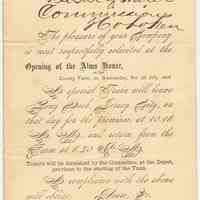 Commissioner
Hoboken
The pleasure of your Company
is most respectfully solicited at the
Opening of the Alms House,
County Farm, on Wednesday,
A special Train will leave
Long Dock, Jersey City, on
that day for the purpose, at 10.10
A. M., and return from the
Farm at 6.30 P. M.
Tickets will be furnished by the Committee, at the Depot,
previous to the starting of the Train.
A compliance with the above
will oblige, Yours, &c.